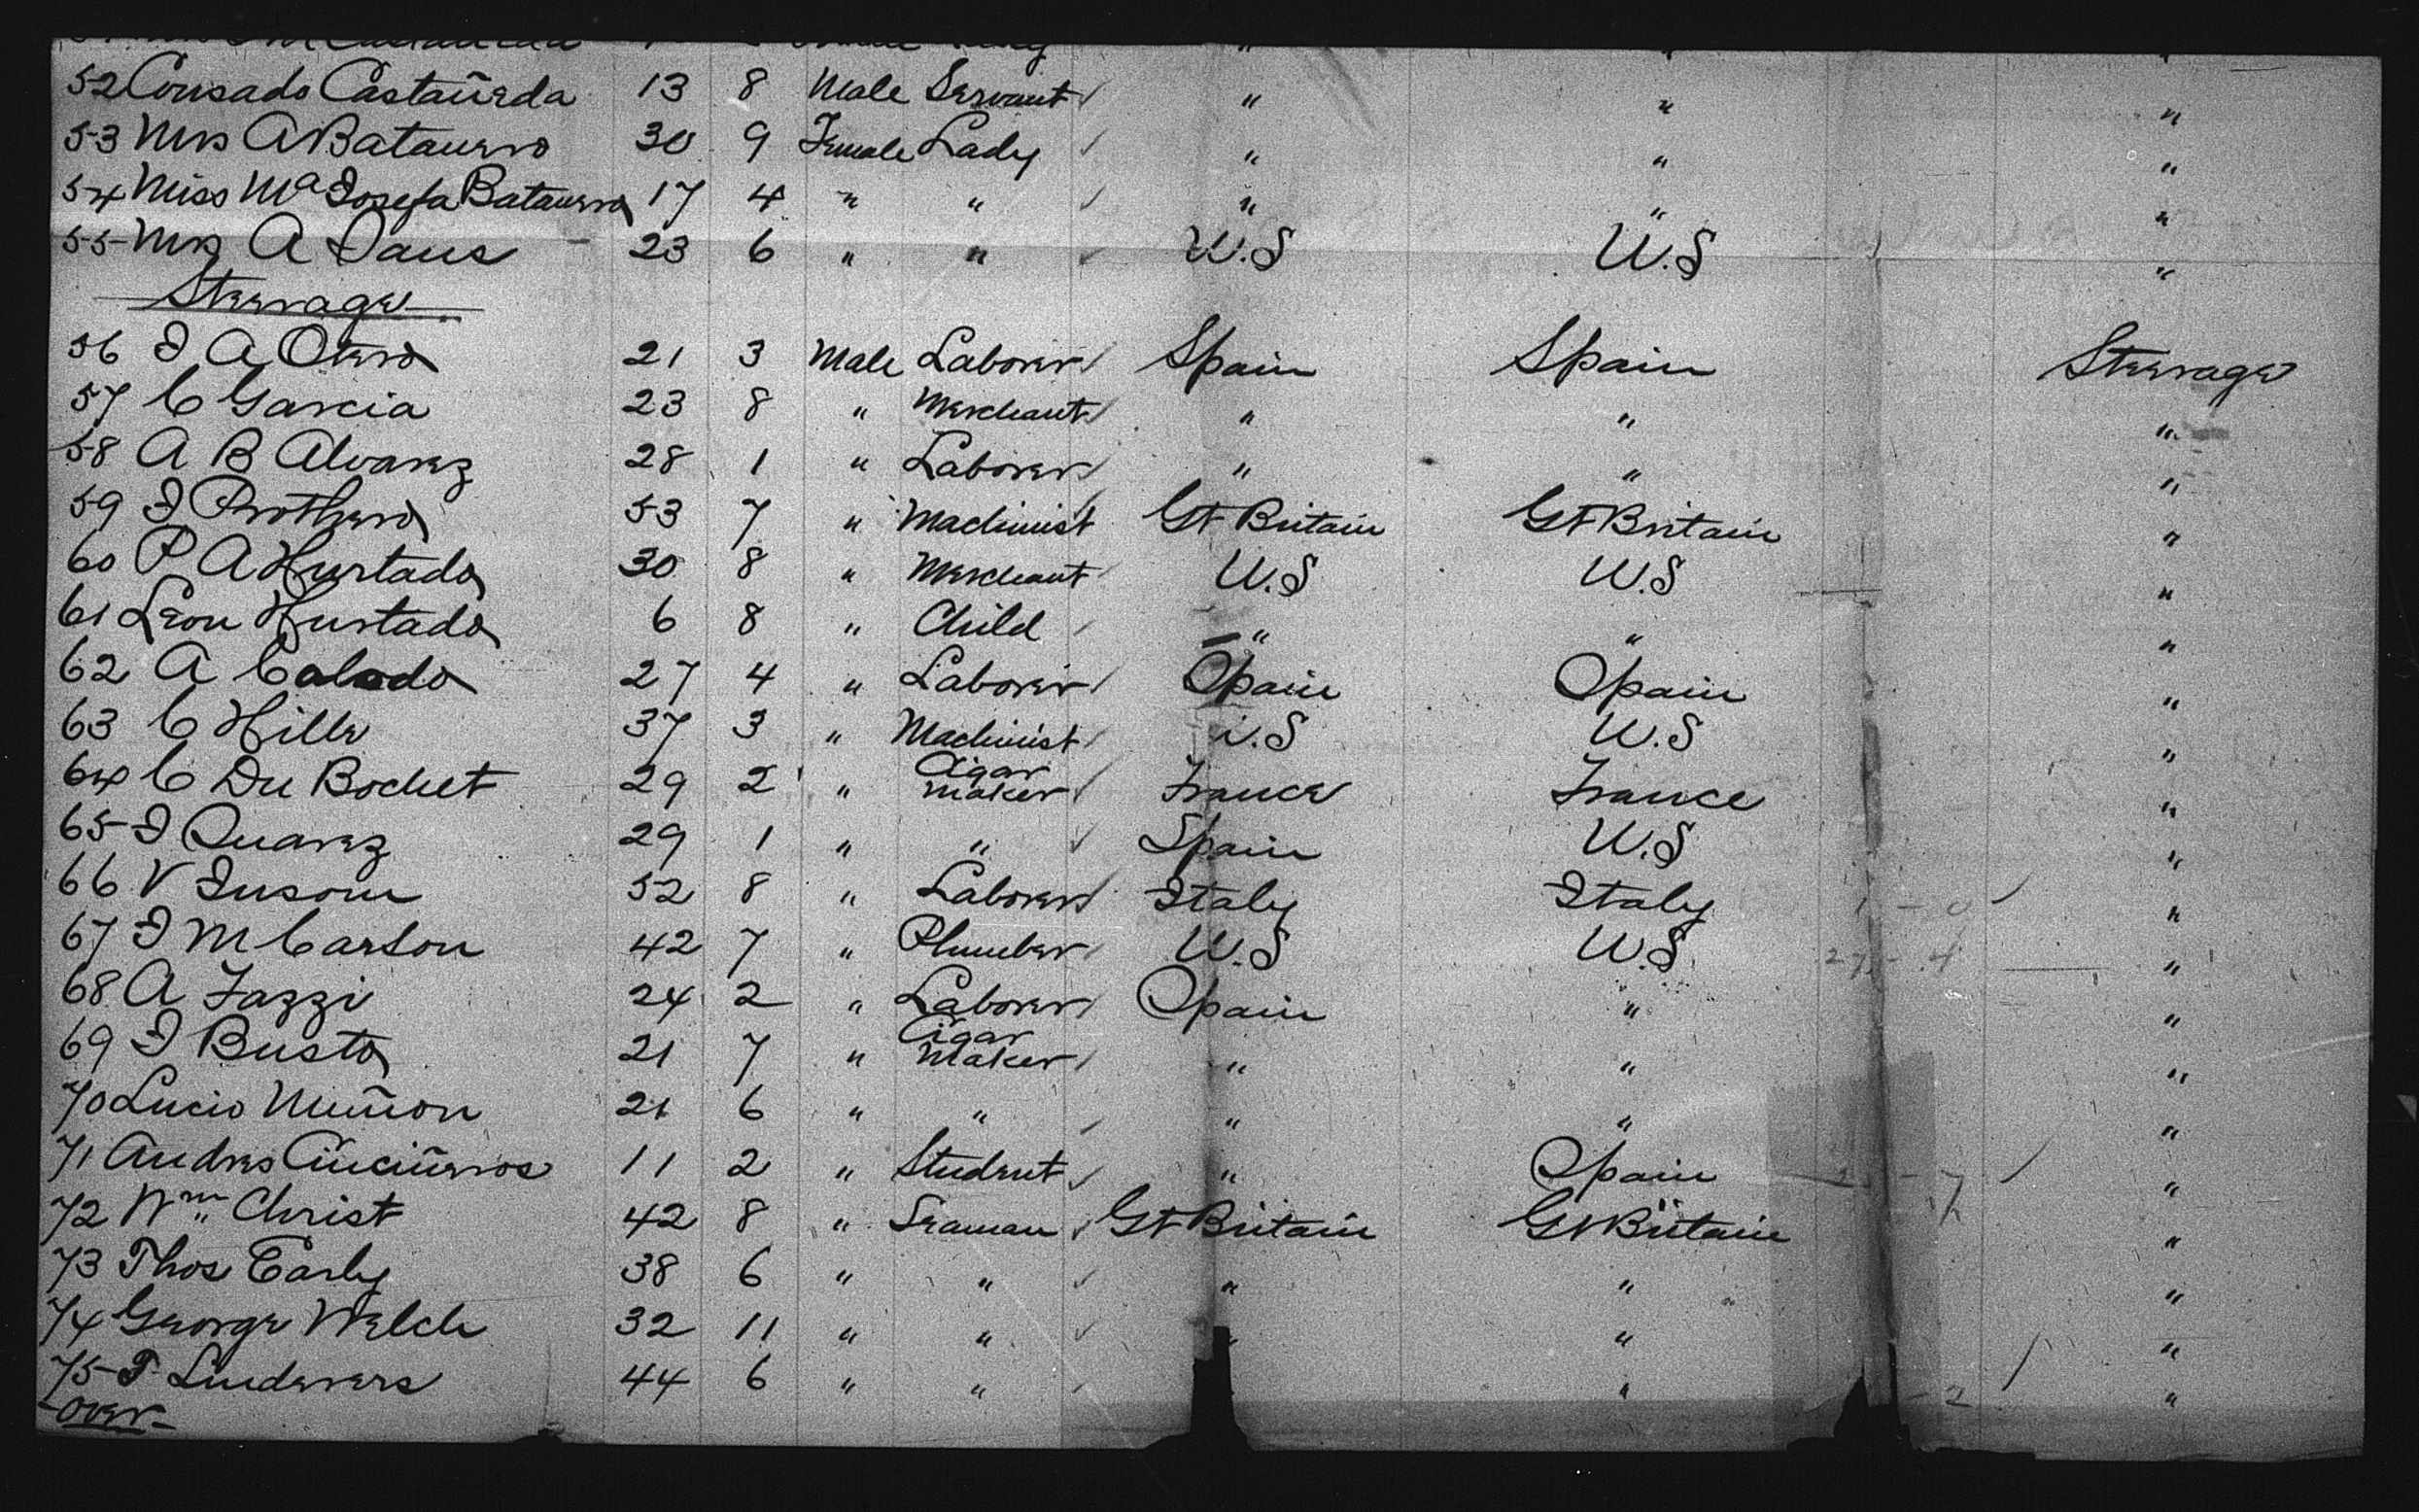 52 Consado Castañeda 13 8 Male Servant " " "
53 Mrs A Batauero 30 9 Female Lady " " "
54 Miss Ma Josefa Batauero 17 4 " " " " "
55 Mrs A Daus 23 6 " " U.S U.S "
Steerage
56 J A Otero 21 3 Male Laborer Spain Spain Steerage
57 C Garcia 23 8 " Merchant " " "
58 A B Alvarez 28 1 " Laborer " " "
59 J Prothero 53 7 " Machinist Gt Britain Gt Britain "
60 P A Hurtado 30 8 " Merchant U.S U.S "
61 Leon Hurtado 6 8 " Child " " "
62 A Calado 27 4 " Laborer Spain Spain "
63 C Hille 37 3 " Machinist U.S U.S "
64 C Du Bochet 29 2 " Cigar maker France France "
65 J Suarez 29 1 " " Spain U.S "
66 V Jusom 52 8 " Laborer Italy Italy "
67 J M Carson 42 7 " Plumber U.S U.S "
68 A Fazzi 24 2 " Laborer Spain " "
69 J Busto 21 7 " Cigar Maker " " "
70 Lucio Muñon 21 6 " " " " "
71 Andres Ciuciñeros 11 2 " Student " Spain "
72 Wm Christ 42 8 " Seaman Gt Britain Gt Britain "
73 Thos Early 38 6 " " " " "
74 George Welch 32 11 " " " " "
75 T Lindevers 44 6 " " " "
-over-